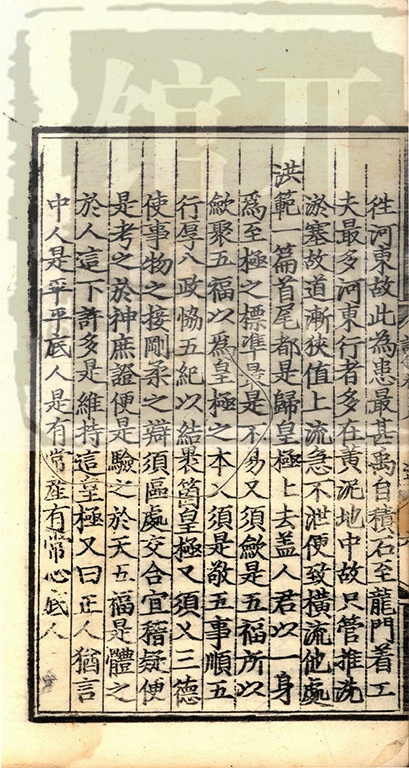 徃河東故此為患最甚禹自積石至龍門着工
夫最多河東行者多在黄泥地中故只管推洗
淤塞故道漸狹值上流急不泄便致橫流他處
洪範一篇首尾都是歸皇極上去盖人君以一身
爲至極之標準最是不易又須歛是五福所以
歛聚五福以爲皇極之本又須是敬五事順五
行厚八政協五紀以結褁箇皇極又須乂三德
使事物之接剛柔之辯須區處交合宜稽疑便
是考之於神庶證便是驗之於天五福是體之
於人這下許多是維持這皇極又曰正人猶言
中人是平平底人是有常產有常心底人